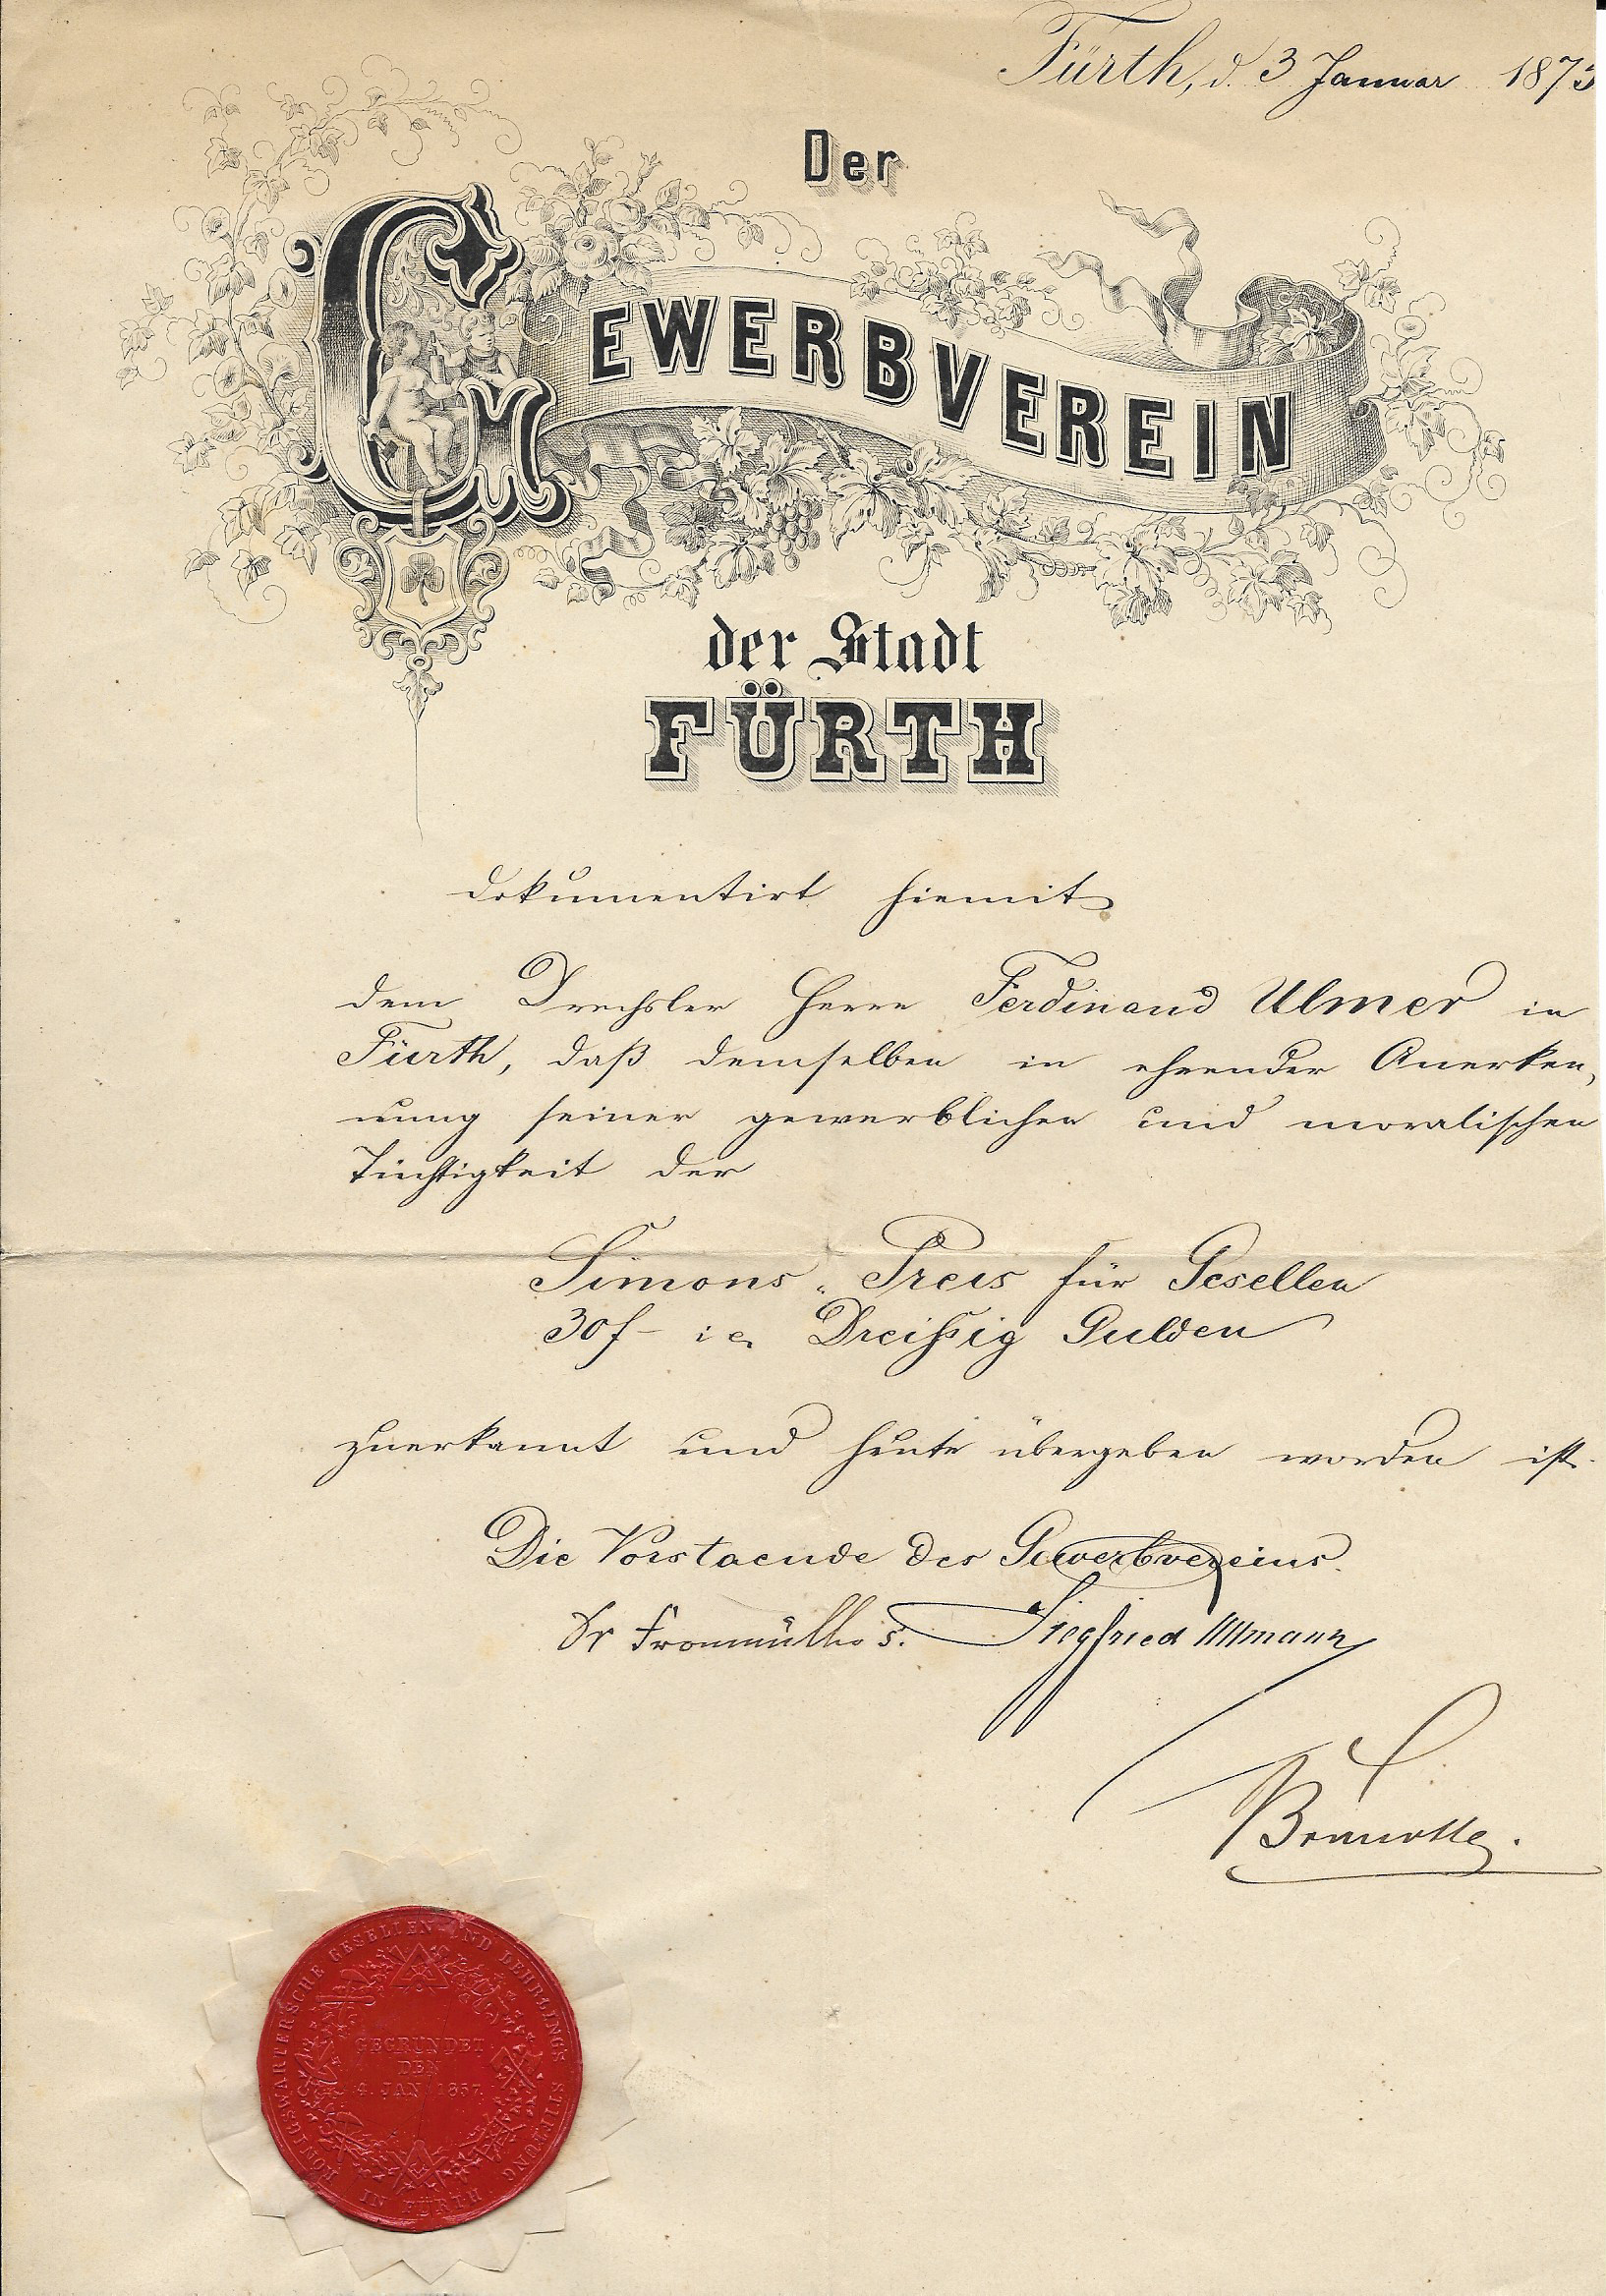 Fürth, d. 3 Januar 1873
Der
GEWERBVEREIN
der Stadt
FÜRTH
dokumentirt hiemit
dem Drechsler Herrn Ferdinand Ulmer in
Fürth, daß demselben in ehrender Anerken,
nung seiner gewerblichen und moralischen
Tüchtigkeit der
Simons-Preis für Gesellen
30f- i e. Dreißig Gulden
zuerkannt und heute übergeben worden ist.
Die Vorstaende des Gewerbvereins.
Dr Fronmüller s. Siegfried Ullmann
KÖNIGSWARTERSCHE GESELLEN UND LEHRLINGS STIFTUNG
IN FÜRTH
GEGRÜNDET
DEN
4. JAN. 1857.